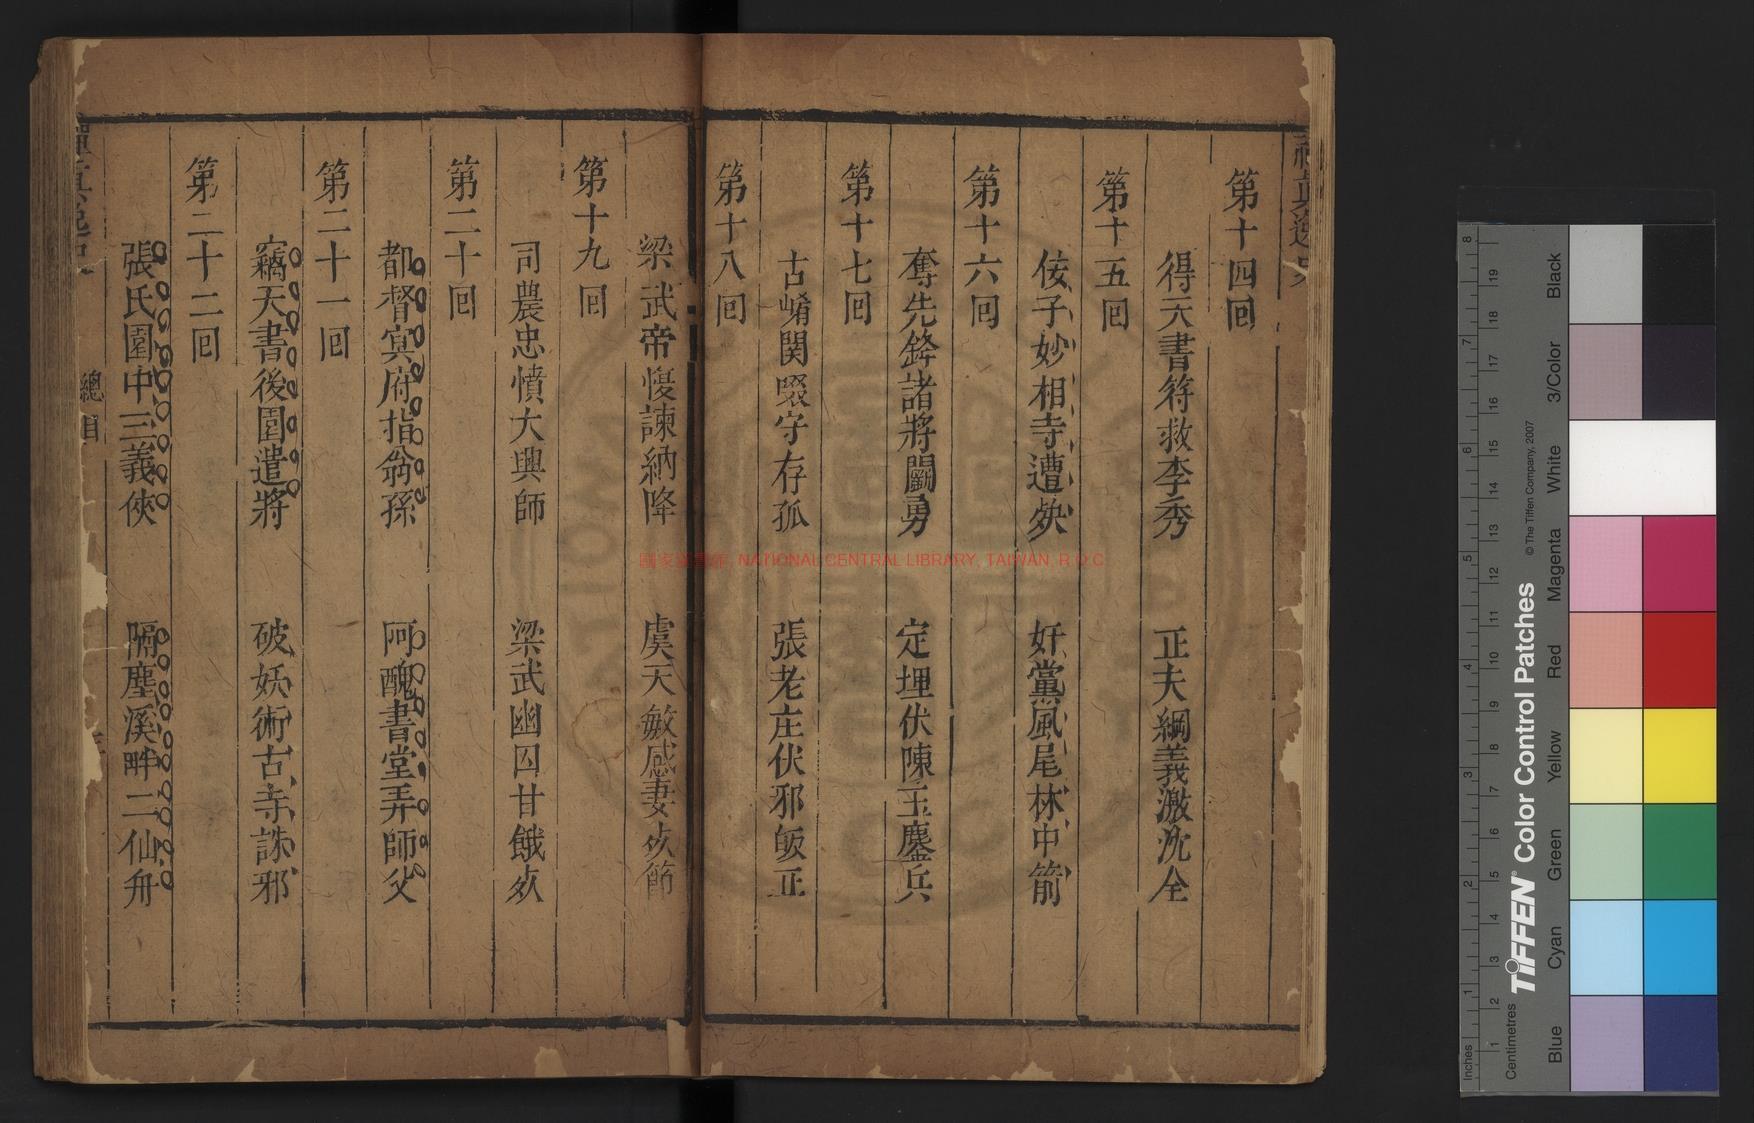 第十四回
得天書符救李秀 正夫綱義激沈全
第十五回
侫子妙相寺遭殃 奸黨風尾林中箭
第十六回
奪先鋒諸將鬭勇 定埋伏陳玉鏖兵
第十七回
古崤関啜守存孤 張老庄伏邪皈正
第十八回
梁武帝愎諫納降 虞天敏感妻死節
第十九回
司農忠憤大興師 梁武幽囚甘餓死
第二十回
都督冥府指翁孫 阿醜書堂弄師父
第二十一回
竊天書後園遣將 破妖術古寺誅邪
第二十二回
張氏園中三義俠 隔塵溪畔二仙舟
總目
國家圖書館, NATIONAL CENTRAL LIBRARY, TAIWAN, R.O.C
Inches
1 2 3 4 5 6 7 8
Centimetres
1 2 3 4 5 6 7 8 9 10 11 12 13 14 15 16 17 18 19
TIFFEN® Color Control Patches
© The Tiffen Company, 2007
Blue
Cyan
Green
Yellow
Red
Magenta
White
3/Color
Black